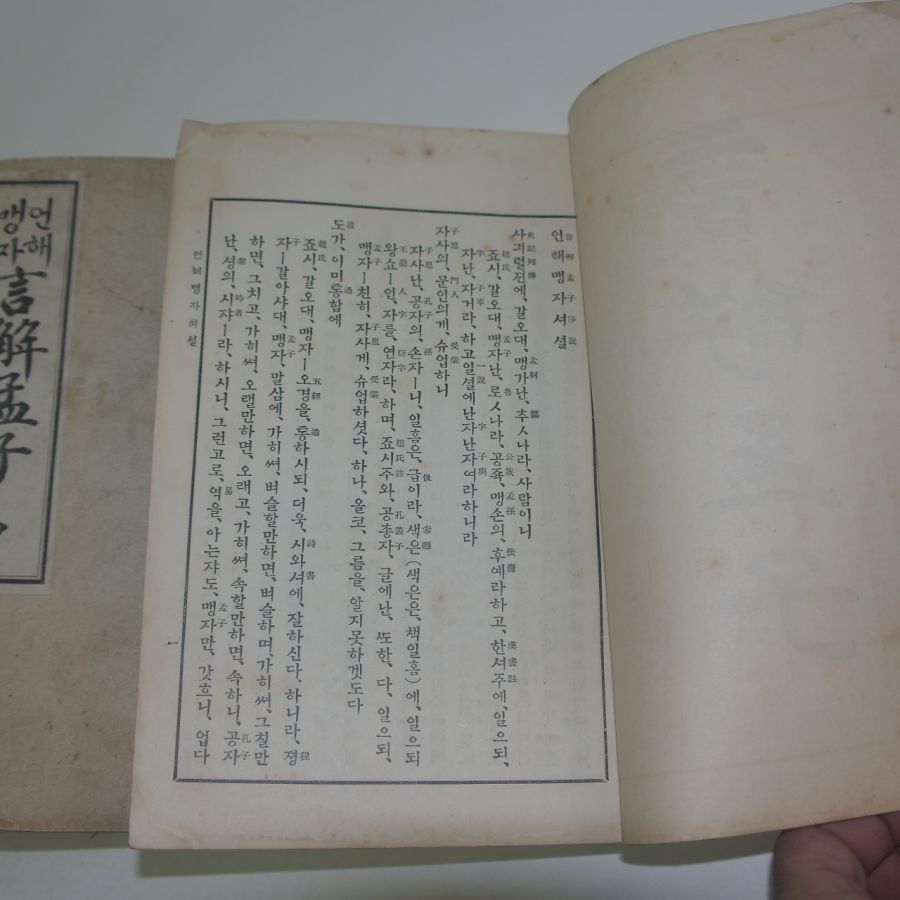 언해맹자셔셜
사긔렬젼에, 갈오대, 맹가난, 추ㅅ나라, 사람이니
죠시, 갈오대, 맹자난, 로ㅅ나라, 공죡, 맹손의, 후예라하고, 한셔주에, 일으되,
자난, 자거라, 하고일셜에난자난자여라하니라
자사의, 문인의게, 슈업하니
자사난, 공자의, 손자ㅣ니, 일홈은, 급이라, 색은(색은은, 책일홈)에, 일으되
왕쇼ㅣ인, 자를, 연자라, 하며, 죠시주와, 공총자, 글에난, 또한, 다, 일으되,
맹자ㅣ친히, 자사게, 슈업하셧다, 하나, 올코, 그름을, 알지못하겟도다
도가, 이미통함에
죠시, 갈오대, 맹자ㅣ오경을, 통하시되, 더욱, 시와셔에, 잘하신다, 하니라, 졍
자ㅣ갈아샤대, 맹자, 말삼에, 가히써, 벼슬할만하면, 벼슬하며, 가히써, 그칠만
하면, 그치고, 가히써, 오랠만하면, 오래고, 가히써, 속할만하면, 속하니, 공자
난, 셩의, 시쟈ㅣ라, 하시니, 그런고로, 역을, 아는쟈도, 맹자만, 갓흐니, 업다
언해맹자셔셜
一
언해
맹자
言解孟子